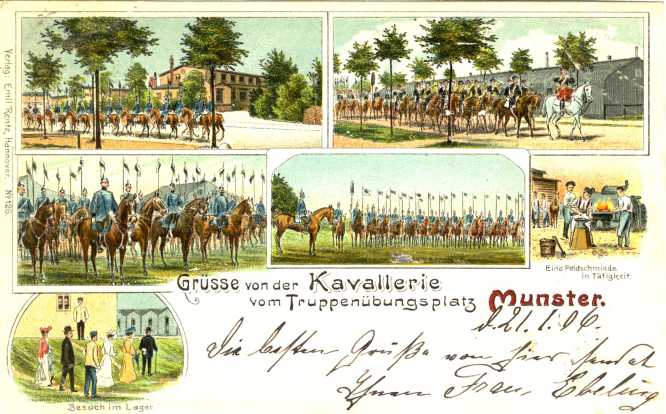 Verlag: Emil Rentz, Hannover. No 126.
Eine Feldschmiede
in Tätigkeit.
Grüsse von der Kavallerie
vom Truppenübungsplatz Munster.
d. 21.1.06.
Die besten Grüße von hier sendet
Ihnen Frau Ebeling
Besuch im Lager